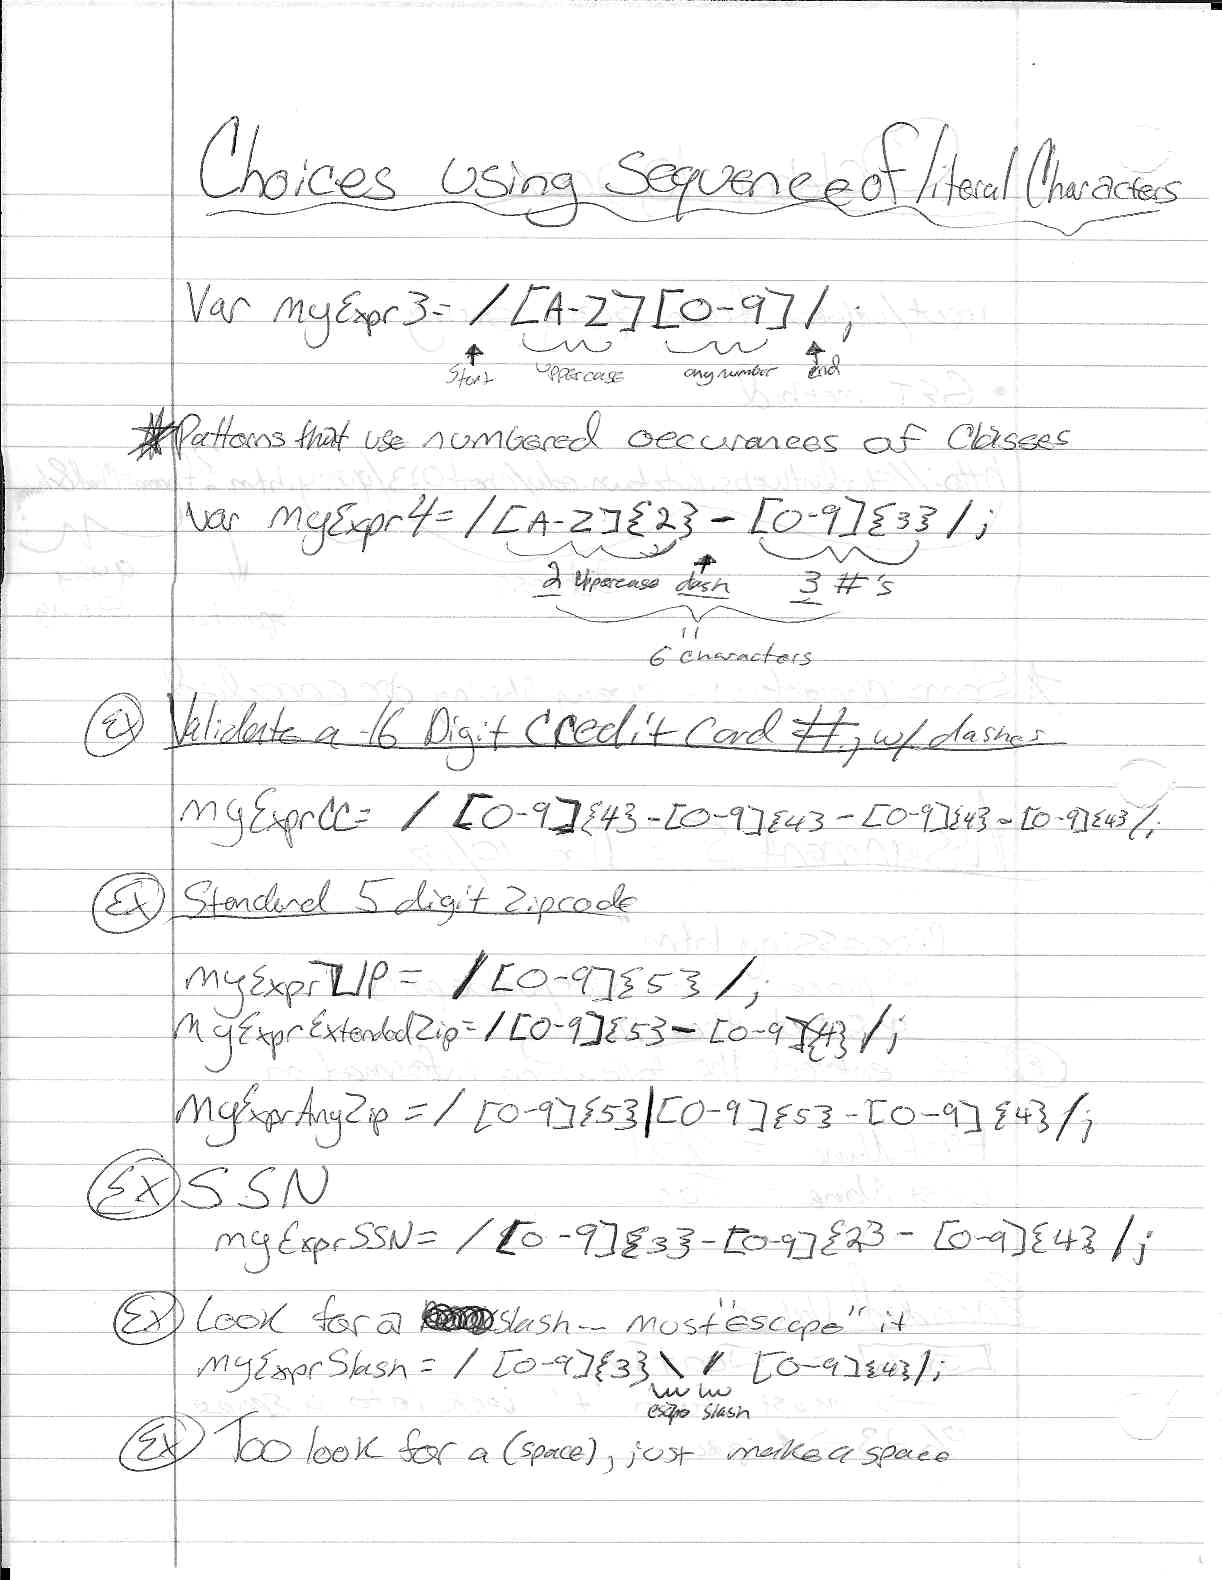 Choices using Sequence of literal Characters
Var myExpr3= /[A-Z][0-9]/;
Start uppercase any number End
*Patterns that use numbered occurances of Classes
Var myExpr4= /[A-Z]{2}-[0-9]{3}/;
2 Uppercase dash 3 #'s
6 characters
Ex Validate a 16 Digit Credit Card #; w/ dashes
myExprCC= /[0-9]{4}-[0-9]{4}-[0-9]{4}-[0-9]{4}/;
Ex Standard 5 digit Zipcode
myExprZIP= /[0-9]{5}/;
myExprExtendedZip= /[0-9]{5}-[0-9]{4}/;
myExprAnyZip= /[0-9]{5}|[0-9]{5}-[0-9]{4}/;
Ex SSN
myExprSSN= /[0-9]{3}-[0-9]{2}-[0-9]{4}/;
Ex Look for a slash - must "escape" it
myExprSlash= /[0-9]{3}\/[0-9]{4}/;
escape slash
Ex Too look for a (space), just make a space